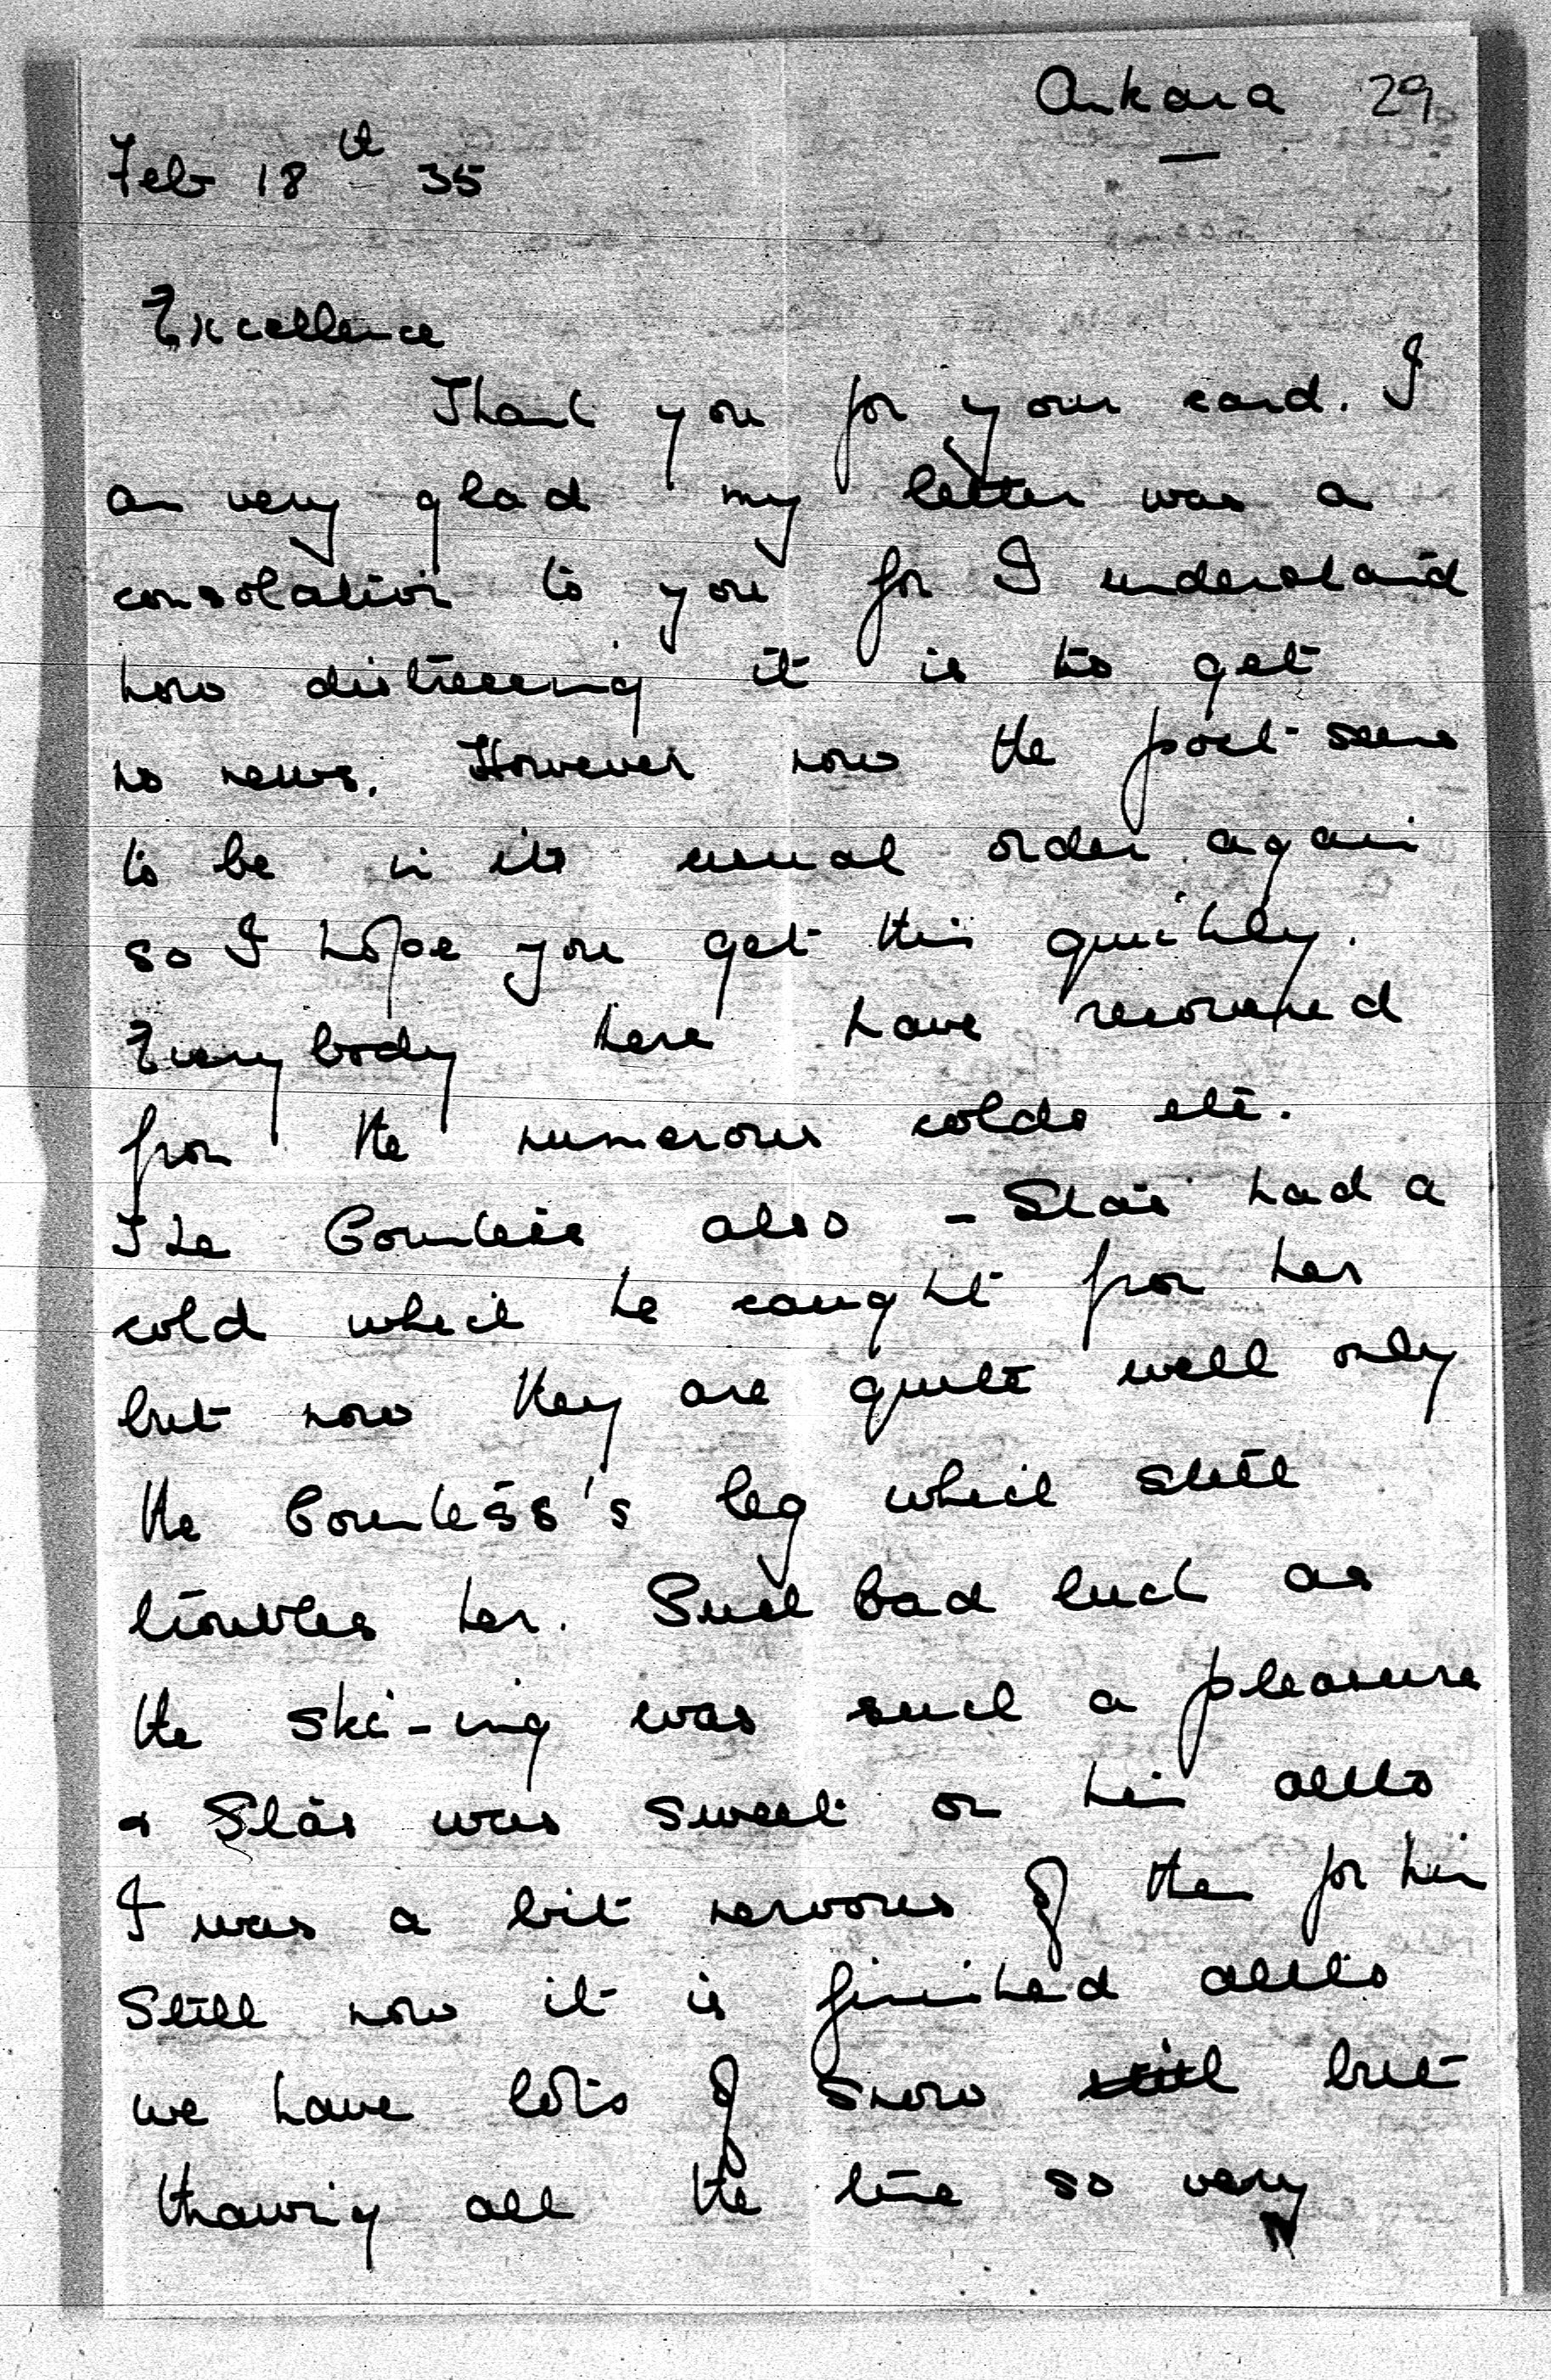 Ankara 29
Feb 18th 35
Excellence
Thank you for your card. I
am very glad my letter was a
consolation to you for I understand
how distressing it is to get
no news. However now the post seems
to be in its usual order again
so I hope you get this quickly.
Everybody here have recovered
from the numerous colds etc.
The Countess also - Stas had a
cold which he caught from her
but now they are quite well only
the Countess's leg which still
troubles her. Such bad luck as
the ski-ing was such a pleasure
& Stas was sweet on his altho
I was a bit nervous of them for him
Still now it is finished altho
we have lots of snow still but
thawing all the time so very